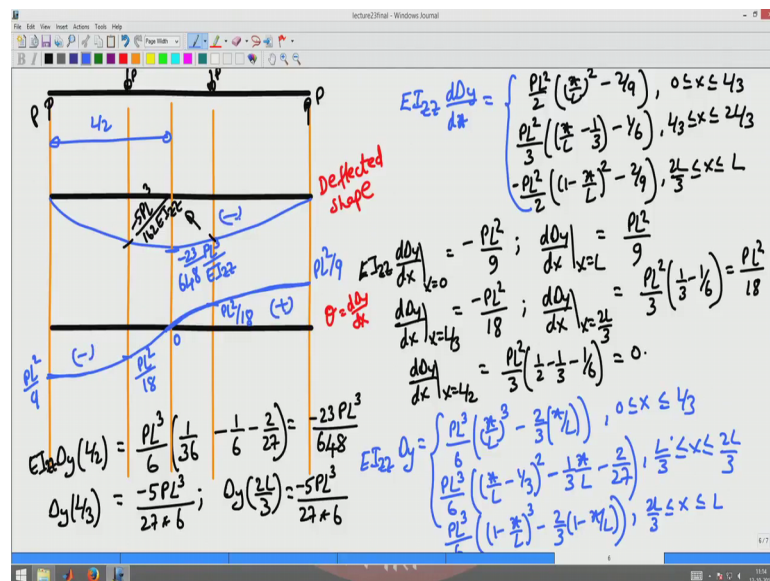 lecture23final - Windows Journal
File Edit View Insert Actions Tools Help
Page Width
P P P P
L/2
Deflected shape
-5PL³/162EIzz
(-)
-23/648 PL³/EIzz
PL²/9
PL²/18 (+)
θ = dΔy/dx
0
(-)
PL²/18
PL²/9
EIzz Δy(L/2) = PL³/6 (1/36 - 1/6 - 2/27) = -23PL³/648
Δy(L/3) = -5PL³/27*6 ; Δy(2L/3) = -5PL³/27*6
EIzz dΔy/dx = { PL²/2 ((x/L)² - 2/9), 0≤x≤L/3
PL²/3 ((x/L - 1/3) - 1/6), L/3≤x≤2L/3
-PL²/2 ((1-x/L)² - 2/9), 2L/3≤x≤L
EIzz dΔy/dx|x=0 = -PL²/9 ; dΔy/dx|x=L = PL²/9
dΔy/dx|x=L/3 = -PL²/18 ; dΔy/dx|x=2L/3 = PL²/3 (1/3 - 1/6) = PL²/18
dΔy/dx|x=L/2 = PL²/3 (1/2 - 1/3 - 1/6) = 0.
EIzz Δy = { PL³/6 ((x/L)³ - 2/3 (x/L)), 0≤x≤L/3
PL³/6 ((x/L - 1/3)² - 1/3 x/L - 2/27), L/3≤x≤2L/3
PL³/6 ((1-x/L)³ - 2/3 (1-x/L)), 2L/3≤x≤L
6/7
6
11:54